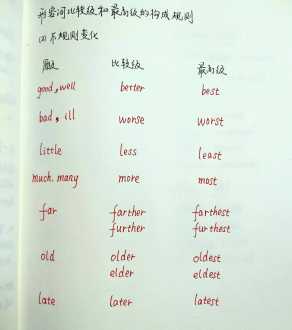 形容词比较级和最高级的构成规则
(2) 不规则变化
原级 比较级 最高级
good, well better best
bad, ill worse worst
little less least
much, many more most
far farther farthest
further furthest
old older oldest
elder eldest
late later latest